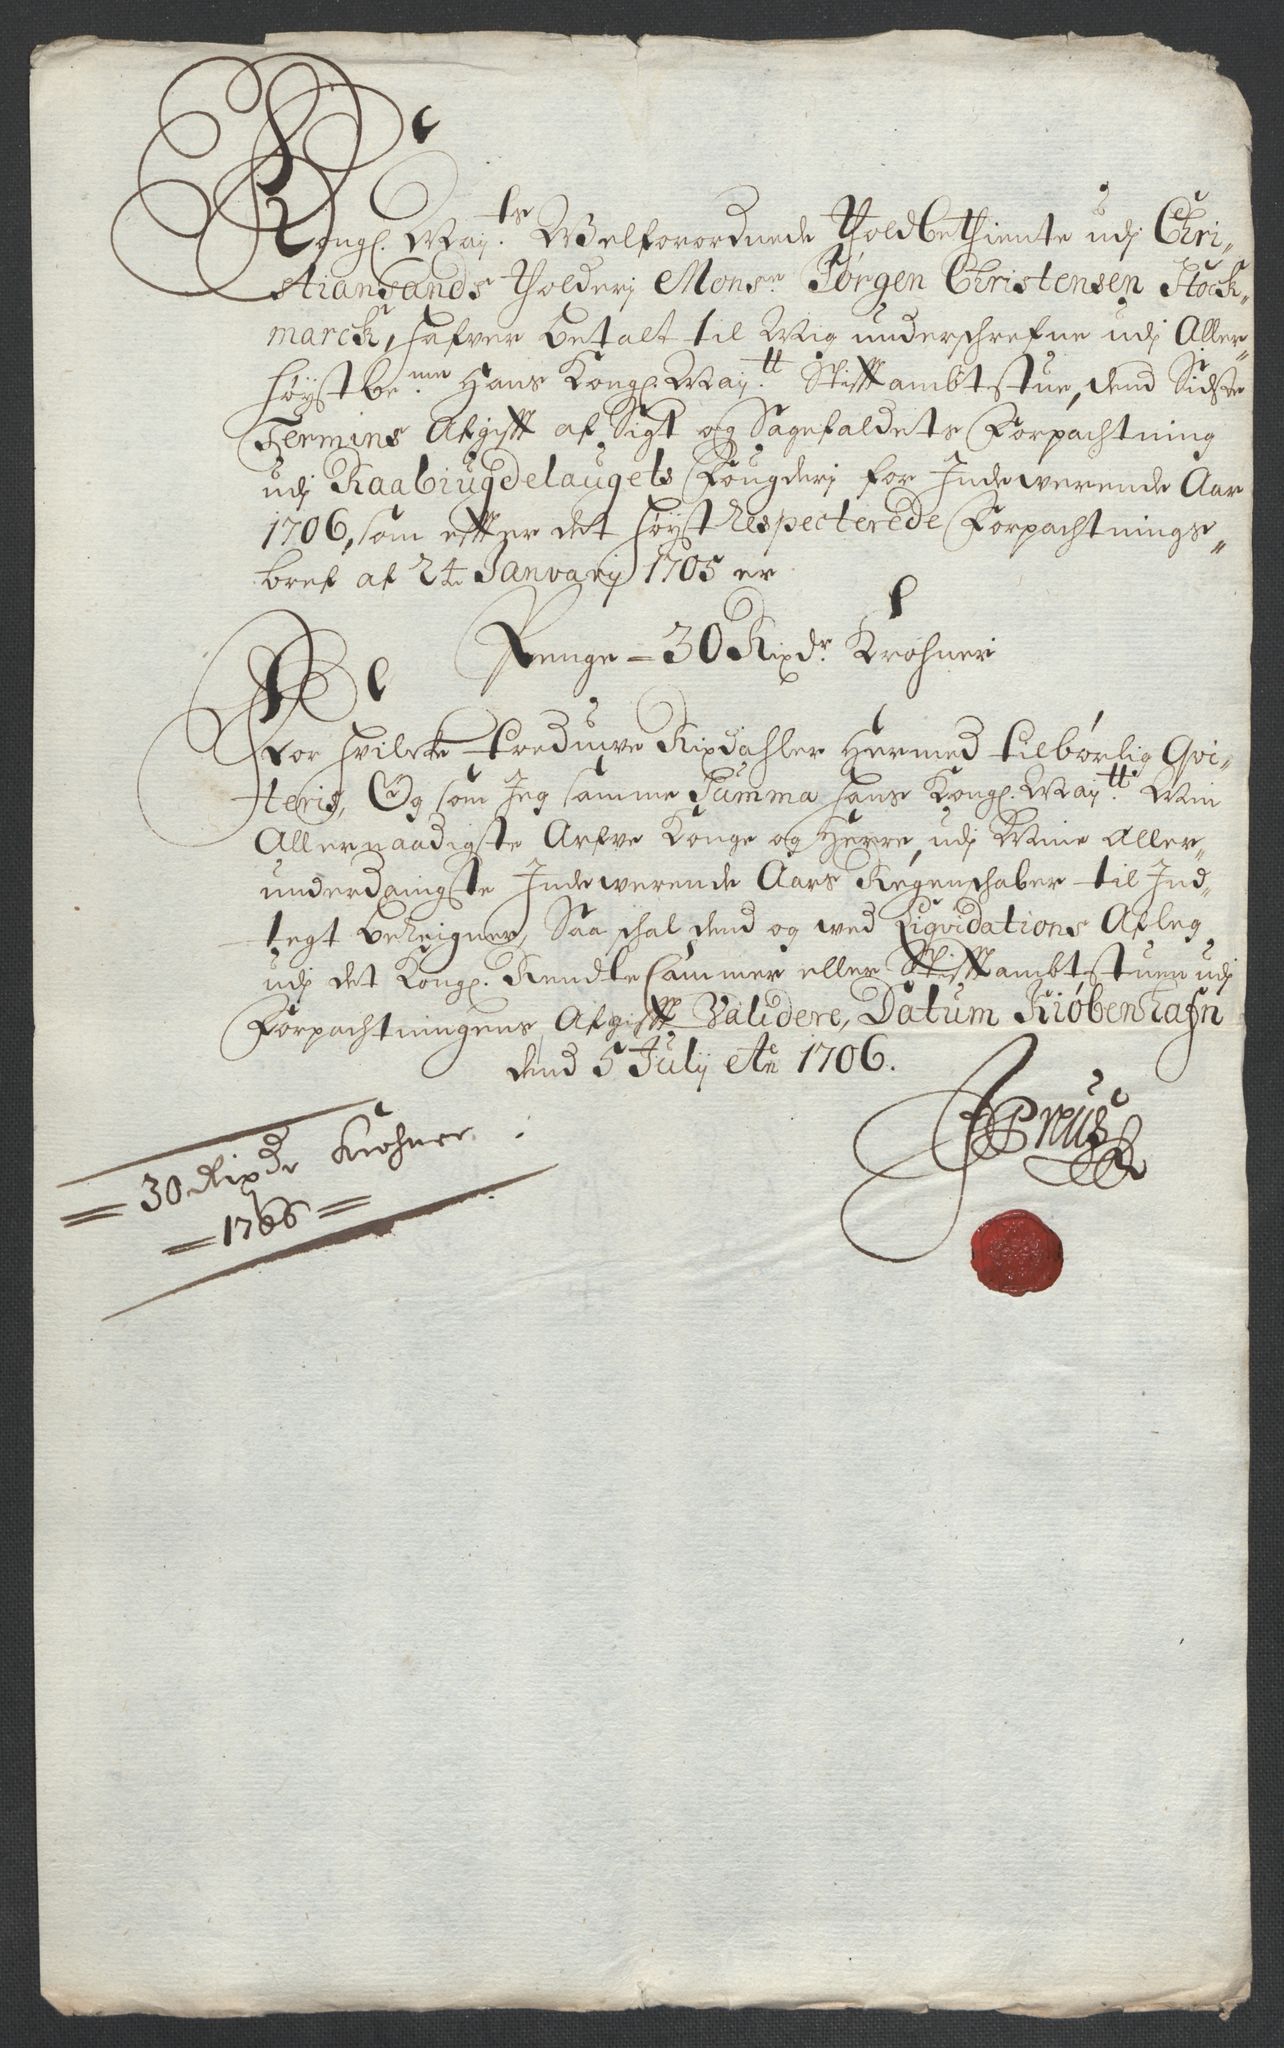 Kongl. May:ts Welforordnede Toldbethiente udj Chri-
stiansands Tholderj Mons:r Jørgen Christensen Stock-
marck, hafver betalt til Mig underschrefne udj Aller-
høystbe:me Hans Kongl. May:tt Stifftambtstue, dend Sidste
Termins Afgifft af Sigt og Sagefaldets Forpachtning
udj Raabiugdelaugets Fougderj for Indewerende Aar
1706, som effter det høystrespecterede Forpachtnings-
bref af 24de Januarij 1705 er
Penge = 30 Rixdr. Krohner
For hvilcke trediuve Rixdahler hermed tilbørlig Qvi-
teris, Og som Jeg samme Summa hans Kongl. May:tt Min
Allernaadigste Arfve Konge og Herre, udj Mine Aller-
underdanigste Indewerende Aars Regenschaber til Ind-
tegt bereigner, Saa schal dend og wed Liqvidations Afleg
udj det Kongl. Rendte Cammer eller Stifftambtstuen udj
Forpachtningens Afgifft Validere, Datum Kiøbenhafn
dend 5 Julij Ao 1706.
JPreus
= 30 Rixdr Krohner
= 1706 =